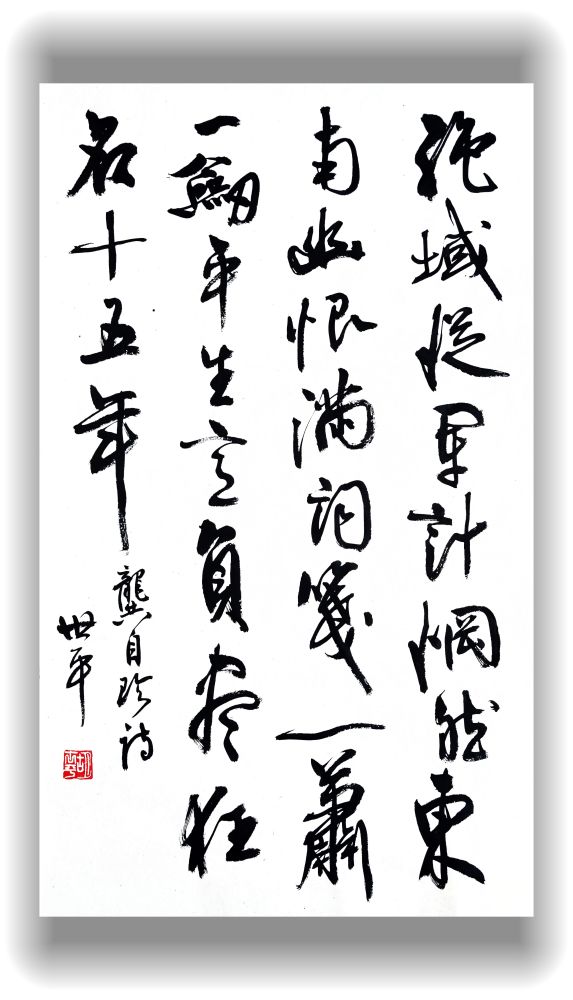 絕域從軍計惘然東
南幽恨滿詞箋一蕭
一劍平生意負盡狂
名十五年
龔自珍詩
世平